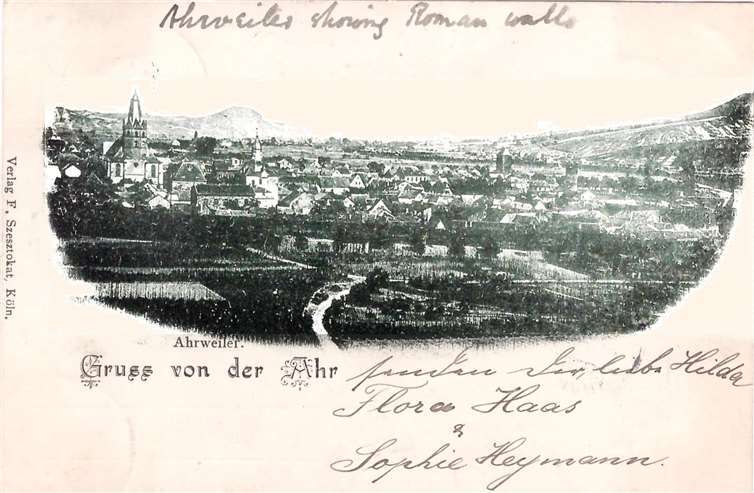 Ahrweiler showing Roman walls
Verlag F. Szesztokat, Köln.
Ahrweiler.
Gruss von der Ahr
senden Dir, liebe Hilda
Flora Haas
&
Sophie Heymann.